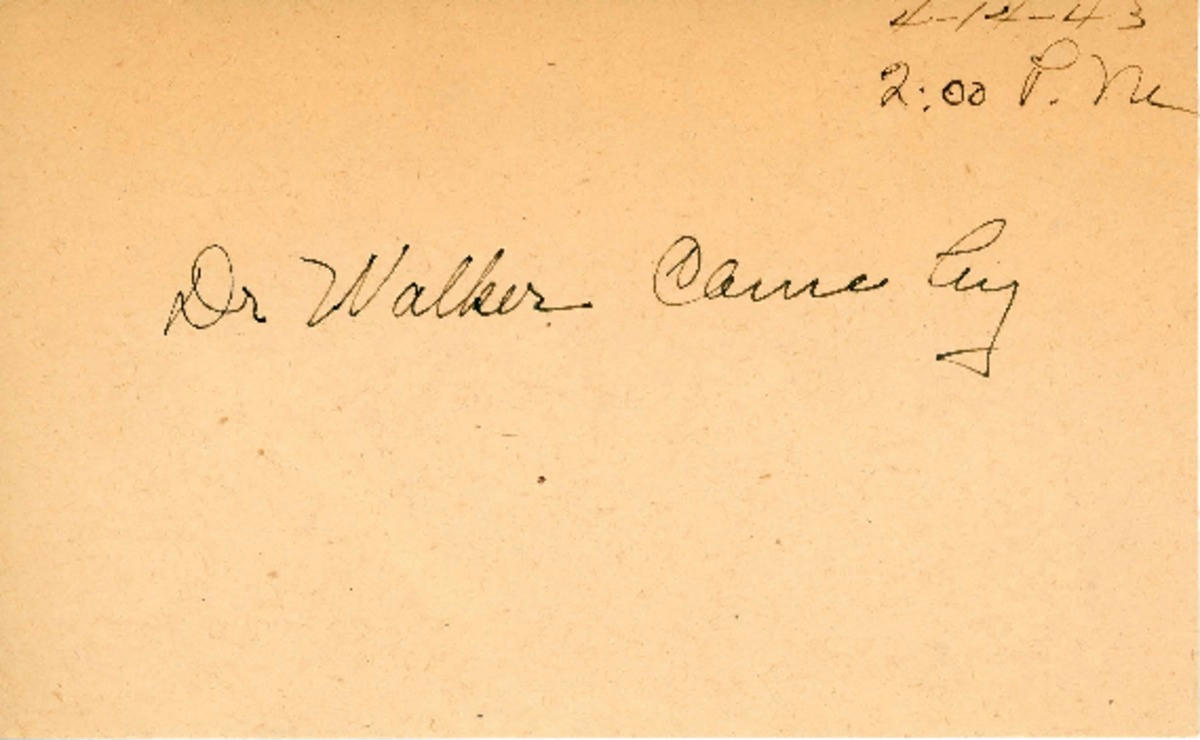 2-12-43
2:00 P. M
Dr Walker Came by